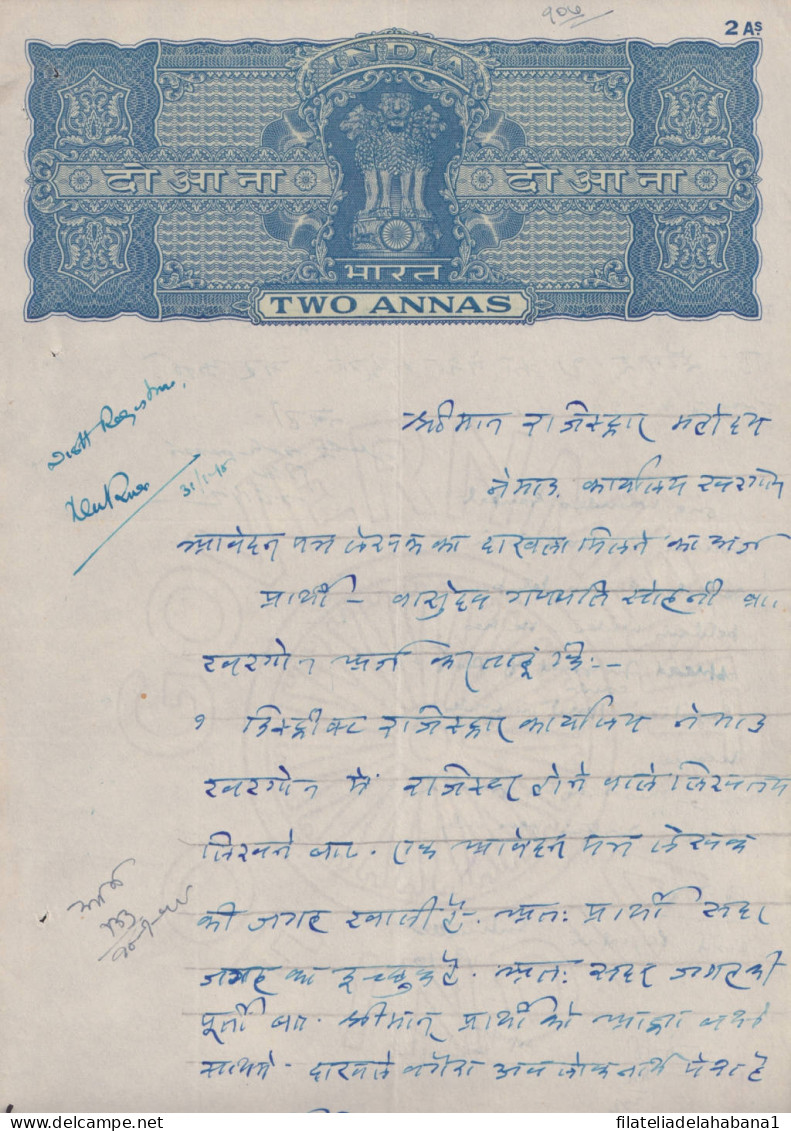 906
2 AS
INDIA
दो आना दो आना
भारत
TWO ANNAS
Distt Registrar,
31/1
श्रीमान राजिस्ट्रार महोदय
नेमाड, कार्यालय खरगोन
आवेदन पत्र लेखक का दाखला मिलने का अर्ज
प्रार्थी – वासुदेव गणपति सोहनी
खरगोन अर्ज करता हूं कि:–
१ डिस्ट्रीक्ट राजिस्ट्रार कार्यालय नेमाड
खरगोन में राजिस्टर होने वाले लिखतम
लिखने बाद. एक आवेदन पत्र लेखक
की जगह खाली है. अतः प्रार्थी सदर
जगह का इच्छुक है. अतः सदर जगह की
पूर्ती बाद. श्रीमान् प्रार्थी को आज्ञा
साथमे. दाखले वगैरा पेश है
filateliadelahabana1